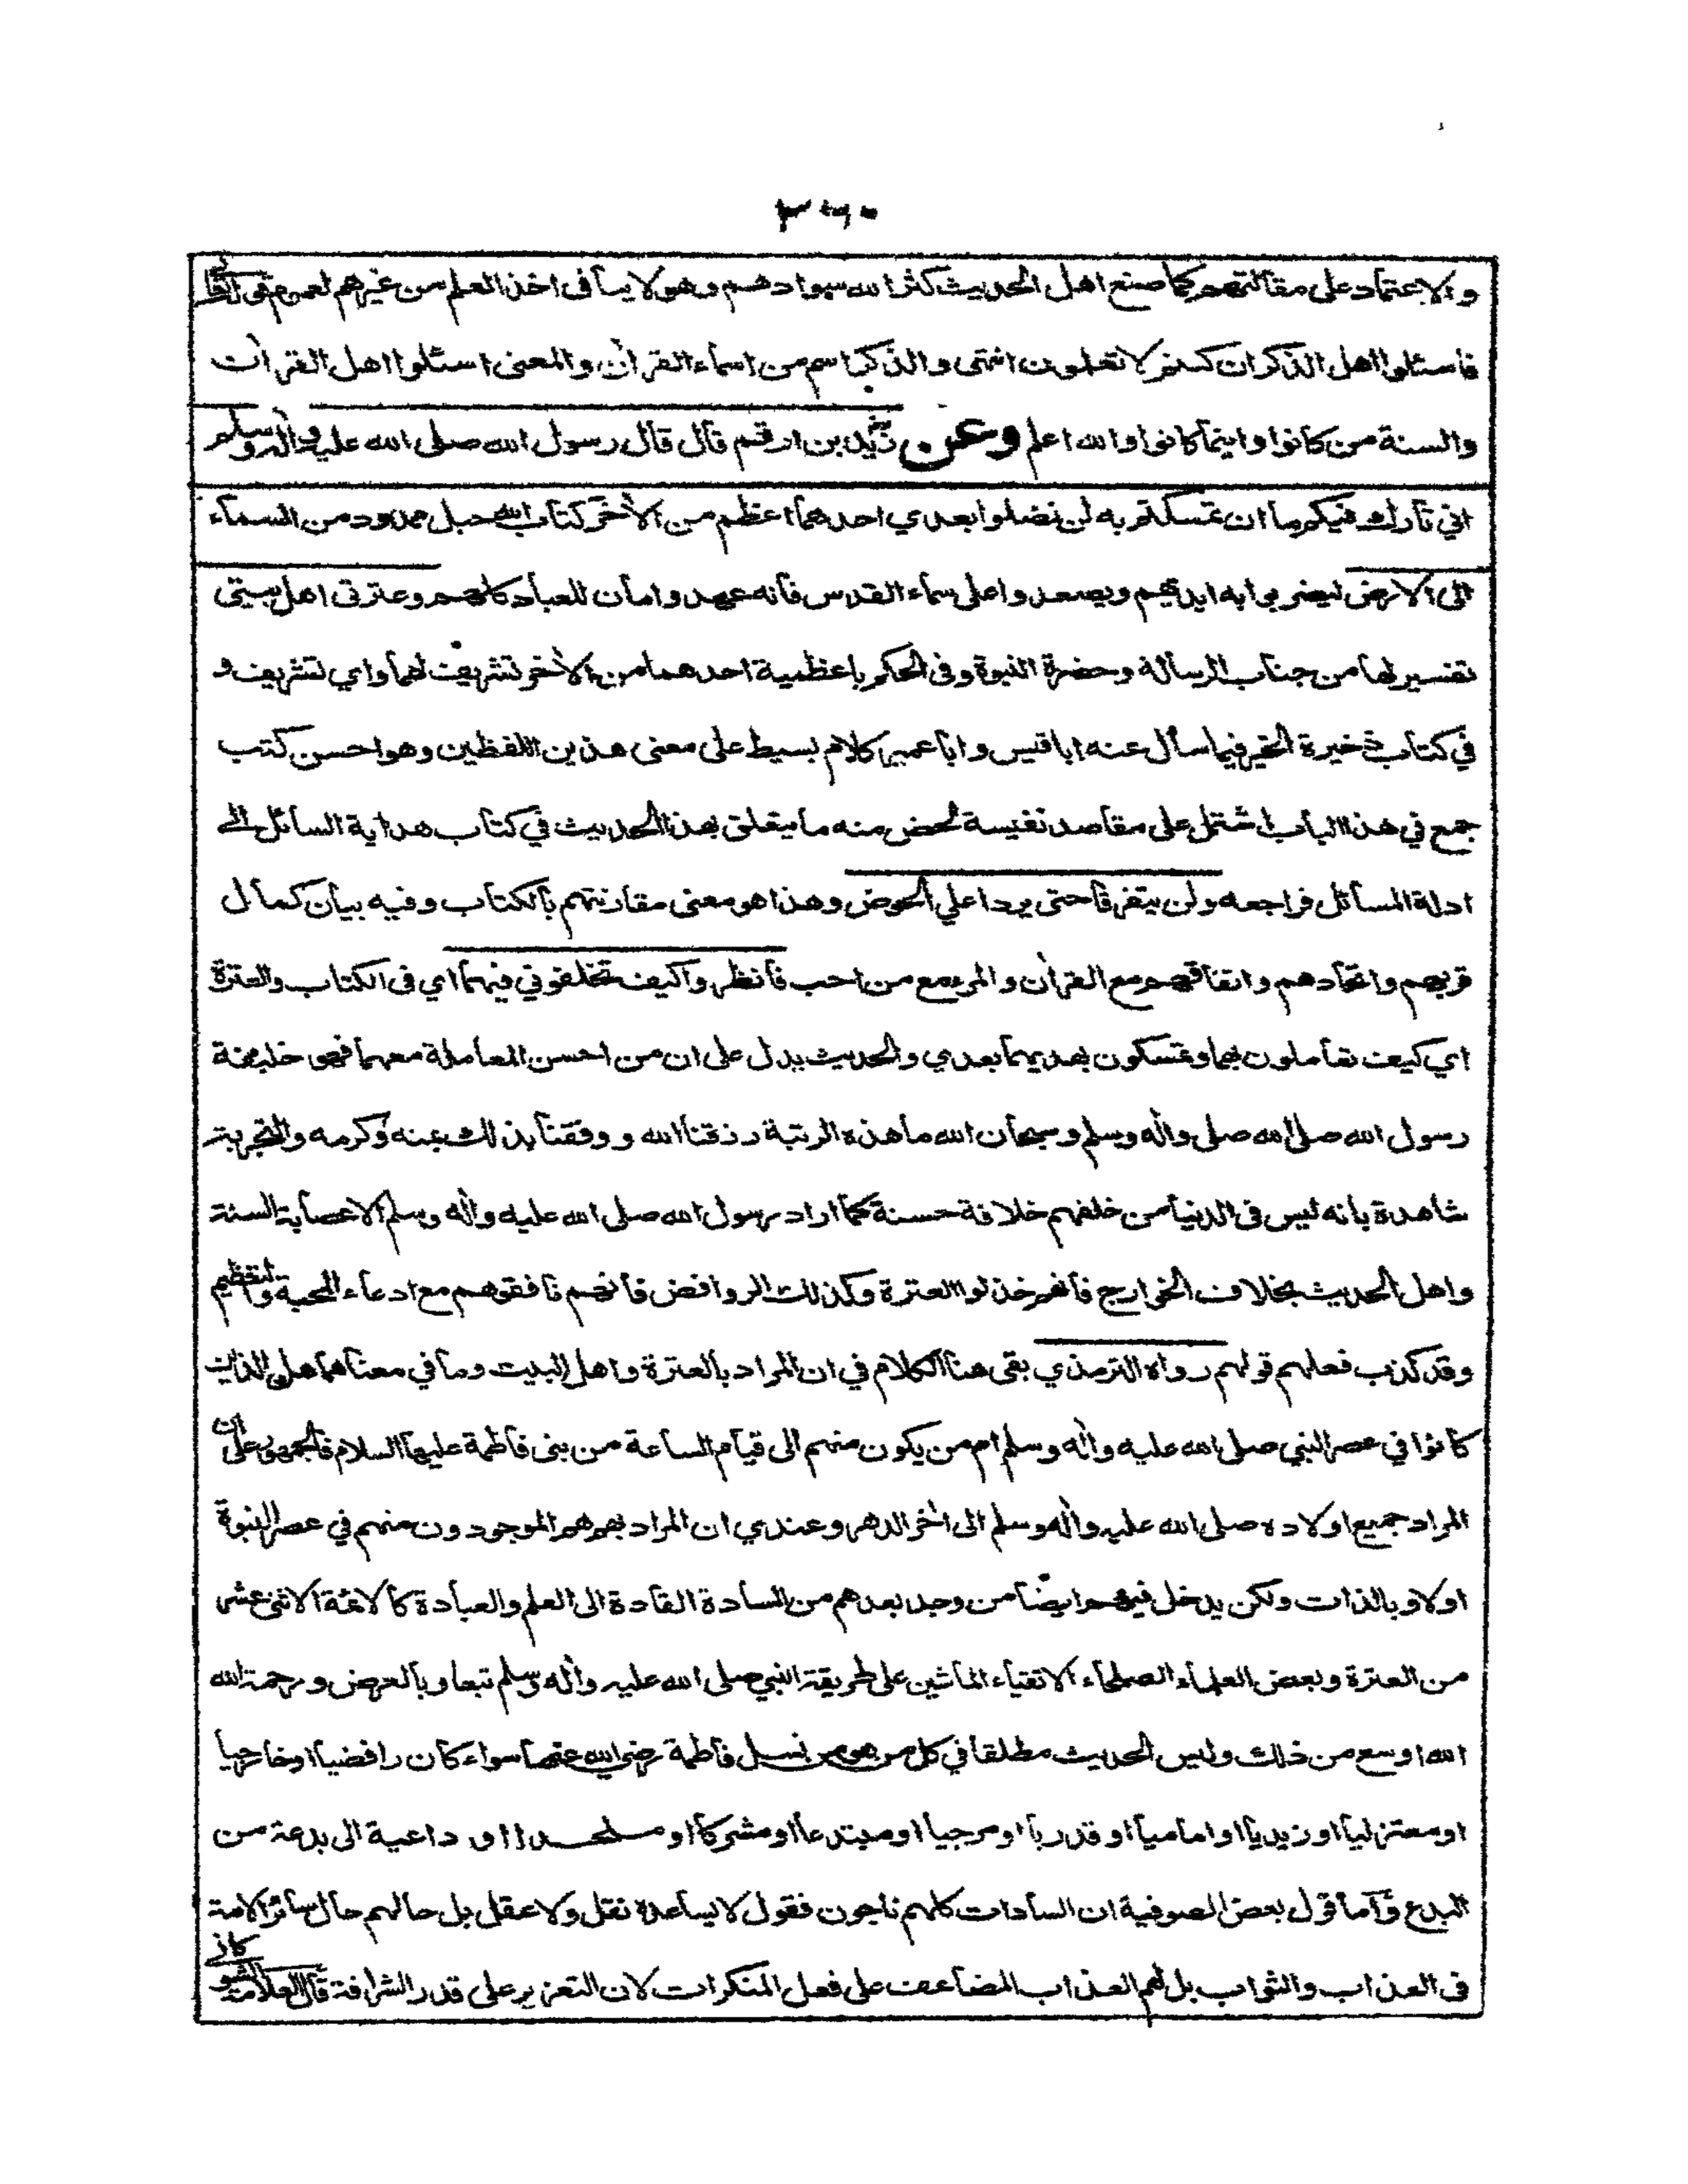 ٣٦٠
والاعتماد على مقالتهم كما صنع اهل الحديث كثر الله سوادهم وهو لا ينافى اخذ العلم من غيرهم لعموم قوله تعالى
فاسئلوا اهل الذكر ان كنتم لا تعلمون انتهى والذكر اسم من اسماء القرآن والمعنى اسئلوا اهل القرآن
والسنة من كانوا واينما كانوا والله اعلم وعن زيد بن ارقم قال قال رسول الله صلى الله عليه واله وسلم
اني تارك فيكم ما ان تمسكتم به لن تضلوا بعدي احدهما اعظم من الآخر كتاب الله حبل ممدود من السماء
الى الارض ليضربوا به ايديهم ويصعدوا على سماء القدس فانه عهد وامان للعباد كلهم وعترتى اهل بيتي
تفسير لها من جناب الرسالة وحضرة النبوة وفى الحكم باعظمية احدهما من الآخر تشريف لهما واي تشريف و
في كتاب ذخيرة الخير فيما سأل عنه ابا قيس وابا عمير كلام بسيط على معنى هذين اللفظين وهو احسن كتب
جمع في هذا الباب اشتمل على مقاصد نفيسة لخص منه ما يتعلق بهذا الحديث في كتاب هداية السائل الى
ادلة المسائل فراجعه ولن يتفرقا حتى يردا علي الحوض وهذا هو معنى مقارنتهم بالكتاب وفيه بيان كمال
قربهم واتحادهم واتفاقهم مع القرآن والمرء مع من احب فانظروا كيف تخلفوني فيهما اي فى الكتاب والعترة
اي كيف تعاملون بهما وتمسكون بهديهما بعدي والحديث يدل على ان من احسن المعاملة معهما فهو خليفة
رسول الله صلى الله صلى واله وسلم وسبحان الله ما هذه الرتبة رزقنا الله ووفقنا بذلك بمنه وكرمه والتجربة
شاهدة بانه ليس فى الدنيا من خلفهم خلافة حسنة كما اراد رسول الله صلى الله عليه واله وسلم الا عصابة السنة
واهل الحديث بخلاف الخوارج فانهم خذلوا العترة وكذلك الروافض فانهم نافقوهم مع ادعاء المحبة والتعظيم
وقد كذب فعلهم قولهم رواه الترمذي بقى هنا الكلام في ان المراد بالعترة واهل البيت وما في معناهما هل الذين
كانوا في عصر النبي صلى الله عليه واله وسلم ام من يكون منهم الى قيام الساعة من بنى فاطمة عليها السلام فالجمهور على ان
المراد جميع اولاده صلى الله عليه واله وسلم الى آخر الدهر وعندي ان المراد بهم هم الموجودون منهم في عصر النبوة
اولا وبالذات ولكن يدخل فيهم ايضا من وجد بعدهم من السادة القادة الى العلم والعبادة كالائمة الاثنى عشر
من العترة وبعض العلماء الصلحاء الاتقياء الماشين على طريقة النبي صلى الله عليه واله وسلم تبعا وبالعرض ورحمة الله
الله اوسع من ذلك وليس الحديث مطلقا في كل من هو من نسل فاطمة رضي الله عنها سواء كان رافضيا او خارجيا
او معتزليا او زيديا او اماميا او قدريا او مرجيا او مبتدعا او مشركا او ملحدا او داعية الى بدعة من
البدع واما قول بعض الصوفية ان السادات كلهم ناجون فقول لا يساعده نقل ولا عقل بل حالهم حال سائر الامة
فى العذاب والثواب بل لهم العذاب المضاعف على فعل المنكرات لان التعزير على قدر الشرافة قال العلامة الشوكاني